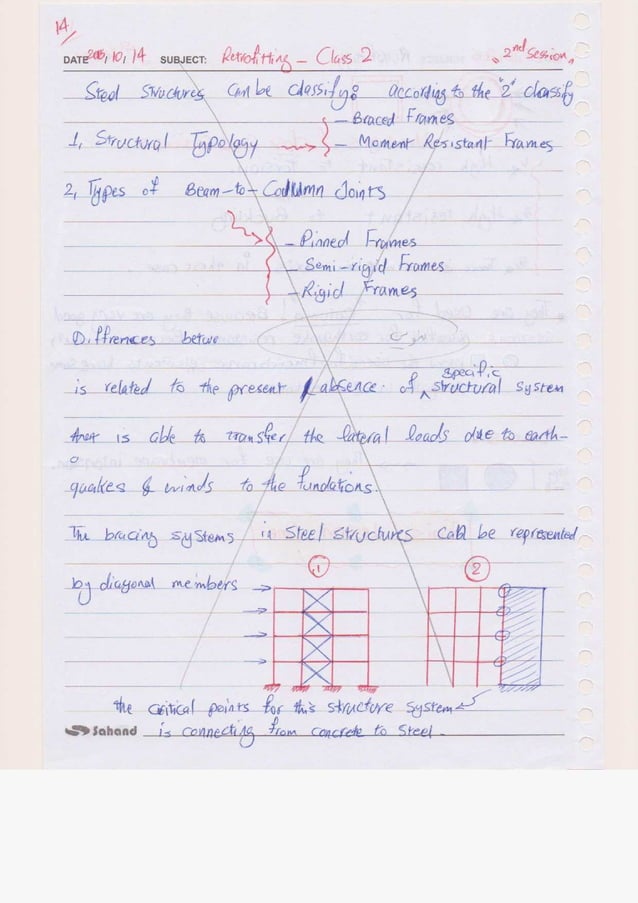 14
DATE 2015, 10, 14 SUBJECT: Retrofitting - Class 2 "2nd Session"
Steel Structures can be classify: according to the "2" classify
1, Structural Typology
- Braced Frames
- Moment Resistant Frames
2, Types of Beam-to-Column Joints
- Pinned Frames
- Semi-rigid Frames
- Rigid Frames
Differences betwe
is related to the present / absence of specific structural system
that is able to transfer the lateral loads due to earth-
quakes & winds to the fundations.
The bracing systems in Steel structures can be represented
by diagonal members
1
2
the critical points for this structure system
is connecting from concrete to Steel.
Sahand